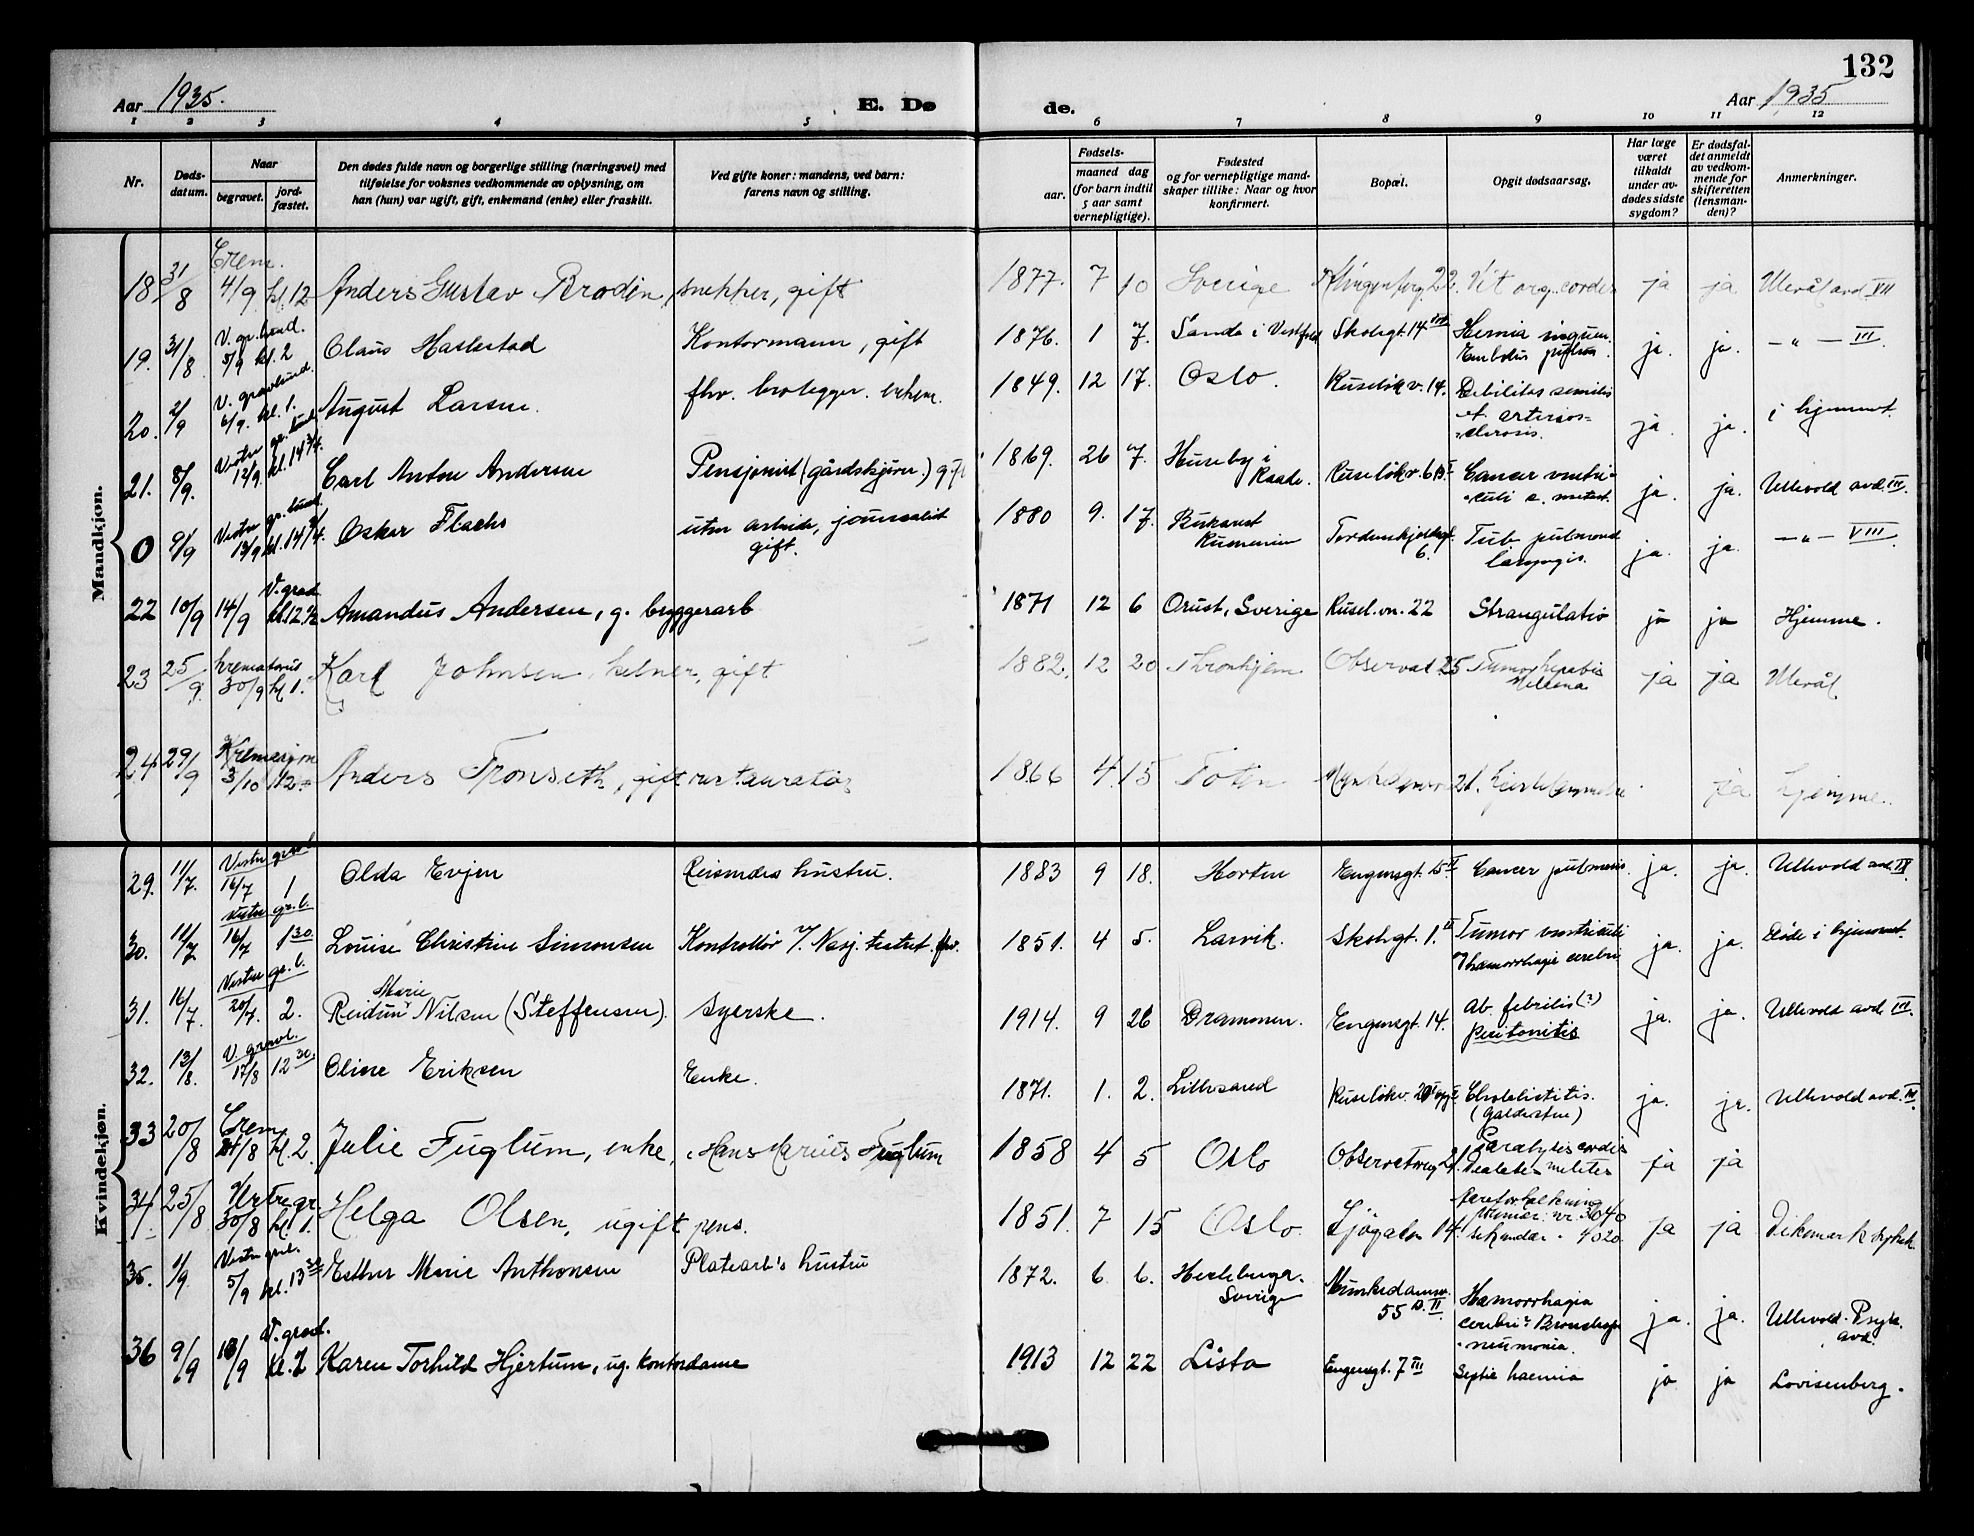 132
Aar 1935.
E. Dø
de.
Aar 1935
1 2 3 4 5 6 7 8 9 10 11 12
Nr.
Døds-
datum.
Naar
begravet.
jord-
fæstet.
Den dødes fulde navn og borgerlige stilling (næringsvei) med
tilføielse for voksnes vedkommende av oplysning, om
han (hun) var ugift, gift, enkemand (enke) eller fraskilt.
Ved gifte koner: mandens, ved barn:
farens navn og stilling.
Fødsels-
aar.
maaned dag
(for barn indtil
5 aar samt
vernepligtige).
Fødested
og for vernepligtige mand-
skaper tillike: Naar og hvor
konfirmert.
Bopæl.
Opgit dødsaarsag.
Har læge
været
tilkaldt
under av-
dødes sidste
sygdom?
Er dødsfal-
det anmeldt
av vedkom-
mende for
skifteretten
(lensman-
den)?
Anmerkninger.
Mandkjøn.
18 31/8 Crem. 4/9 kl. 12 Anders Gustav Brodin, snekker, gift 1877. 7 10 Sverige Klingenberg. 22. Vit. org. cordis ja ja Ulevål avd. VII
19. 31/8 V. gr.lund. 5/9 kl. 2 Olaus Haslestad Kontormann, gift 1876. 1 7. Sande i Vestfold Skolegt. 14 Hernia inguin. Embolus pulm. ja. ja. — " — III.
20. 2/9 V. gravlund. 6/9. kl. 1. August Larsen. fhv. brolegger. enkem. 1849. 12 17. Oslo. Ruseløkv. 14. Debilitas senilis et arterios-sclerosis. ja. ja. i hjemmet.
21. 8/9. Vestre gr. lund 12/9. kl. 14 3/4. Carl Anton Andersen Pensjonist (gårdskjører.) gift 1869. 26 7. Huseby i Raade. Ruseløkv. 6 Cancer ventri-culi c. metast. ja. ja. Ullevold avd. III.
0 9/9 Vestre gr. lund. 12/9 kl. 14 Oskar Flachs uten arbeide, journalist gift. 1880 9. 17. Bukarest Rumenien Tordenskjoldsgt. 6. Tub. pulmond laryngis. ja. ja. — " — VIII.
22 10/9 14/9 V. grav. kl. 12 1/2 Amandus Andersen, g. bryggerarb 1871 12 6 Orust, Sverige Rusel.vn. 22 Strangulatio ja ja Hjemme.
23 25/9. krematoriet 30/9 kl 1. Karl Johnsen, kelner, gift 1882. 12 20 Thronhjem Observat. 25 Tumor hepatis Mellena ja ja Ulevål.
24 29/9 Kremasjon 3/10 1/2 Anders Tronseth, gift restauratør 1866 4. 15 Toten 21. ja hjemme.
Kvindekjøn.
29. 11/7. Vestre gravl. 16/7 1 Olda Evjen Reisendes hustru. 1883 9 18. Horten Engensgt. 15 II Cancer pulmonis. ja. ja. Ullevold avd. IX.
30. 11/7 Vestre gr.l. 16/7 1 30. Louise Christine Simonsen Kontrollør v/. Nasj. teatret. fhv. 1851. 4 5. Larvik. Skolegt. 1. II Tumor ventriculi Hæmorrhagia cerebri ja. ja. Døde i hjemmet.
31. 16/7. Vestre gr.l. 20/7. 2. Reidun Marie Nilsen (Steffensen). Syerske. 1914. 9 26 Drammen. Engensgt. 14. Ab. febrilis (?) Peritonitis ja. ja. Ullevold avd. III.
32. 13/8. V. gravl. 17/8 12 30. Oline Eriksen Enke. 1871. 1. 2. Lillesand Ruseløkv. Cholelistitis. (Galdesten) ja. ja. Ullevold avd. III.
33 20/8 Crem 24/8 kl. 2. Julie Fuglum, enke, Hans Marius Fuglum 1858 4 5 Oslo Observatoriegt 21. Paralysis cordis Diabetes melites ja ja
34 25/8 Vestre gr. 30/8 kl. 1. Helga Olsen, ugift pens. 1851. 7 15 Oslo. Sjøgaten 14. Aareforkalkning primær: nr. 3040 sekundær - 4020. ja ja Dikemark sykeh.
35. 1/9. Vestre gravl. 5/9 kl. 13 30 Esther Marie Anthonsen Platearb's hustru 1872. 6. 6. Sverige Munkedamsv. 55 B. II. Hæmorrhagia cerebri? Bronchop-neumonia. ja. ja. Ullevold. Psyk. avd.
36 9/9 13/9 V. gravl. kl. 2 Karen Torhild Hjertum, ug. kontordame 1913 12 22 Lista Engensgt. 7 III Septic haemia ja ja Lovisenberg.